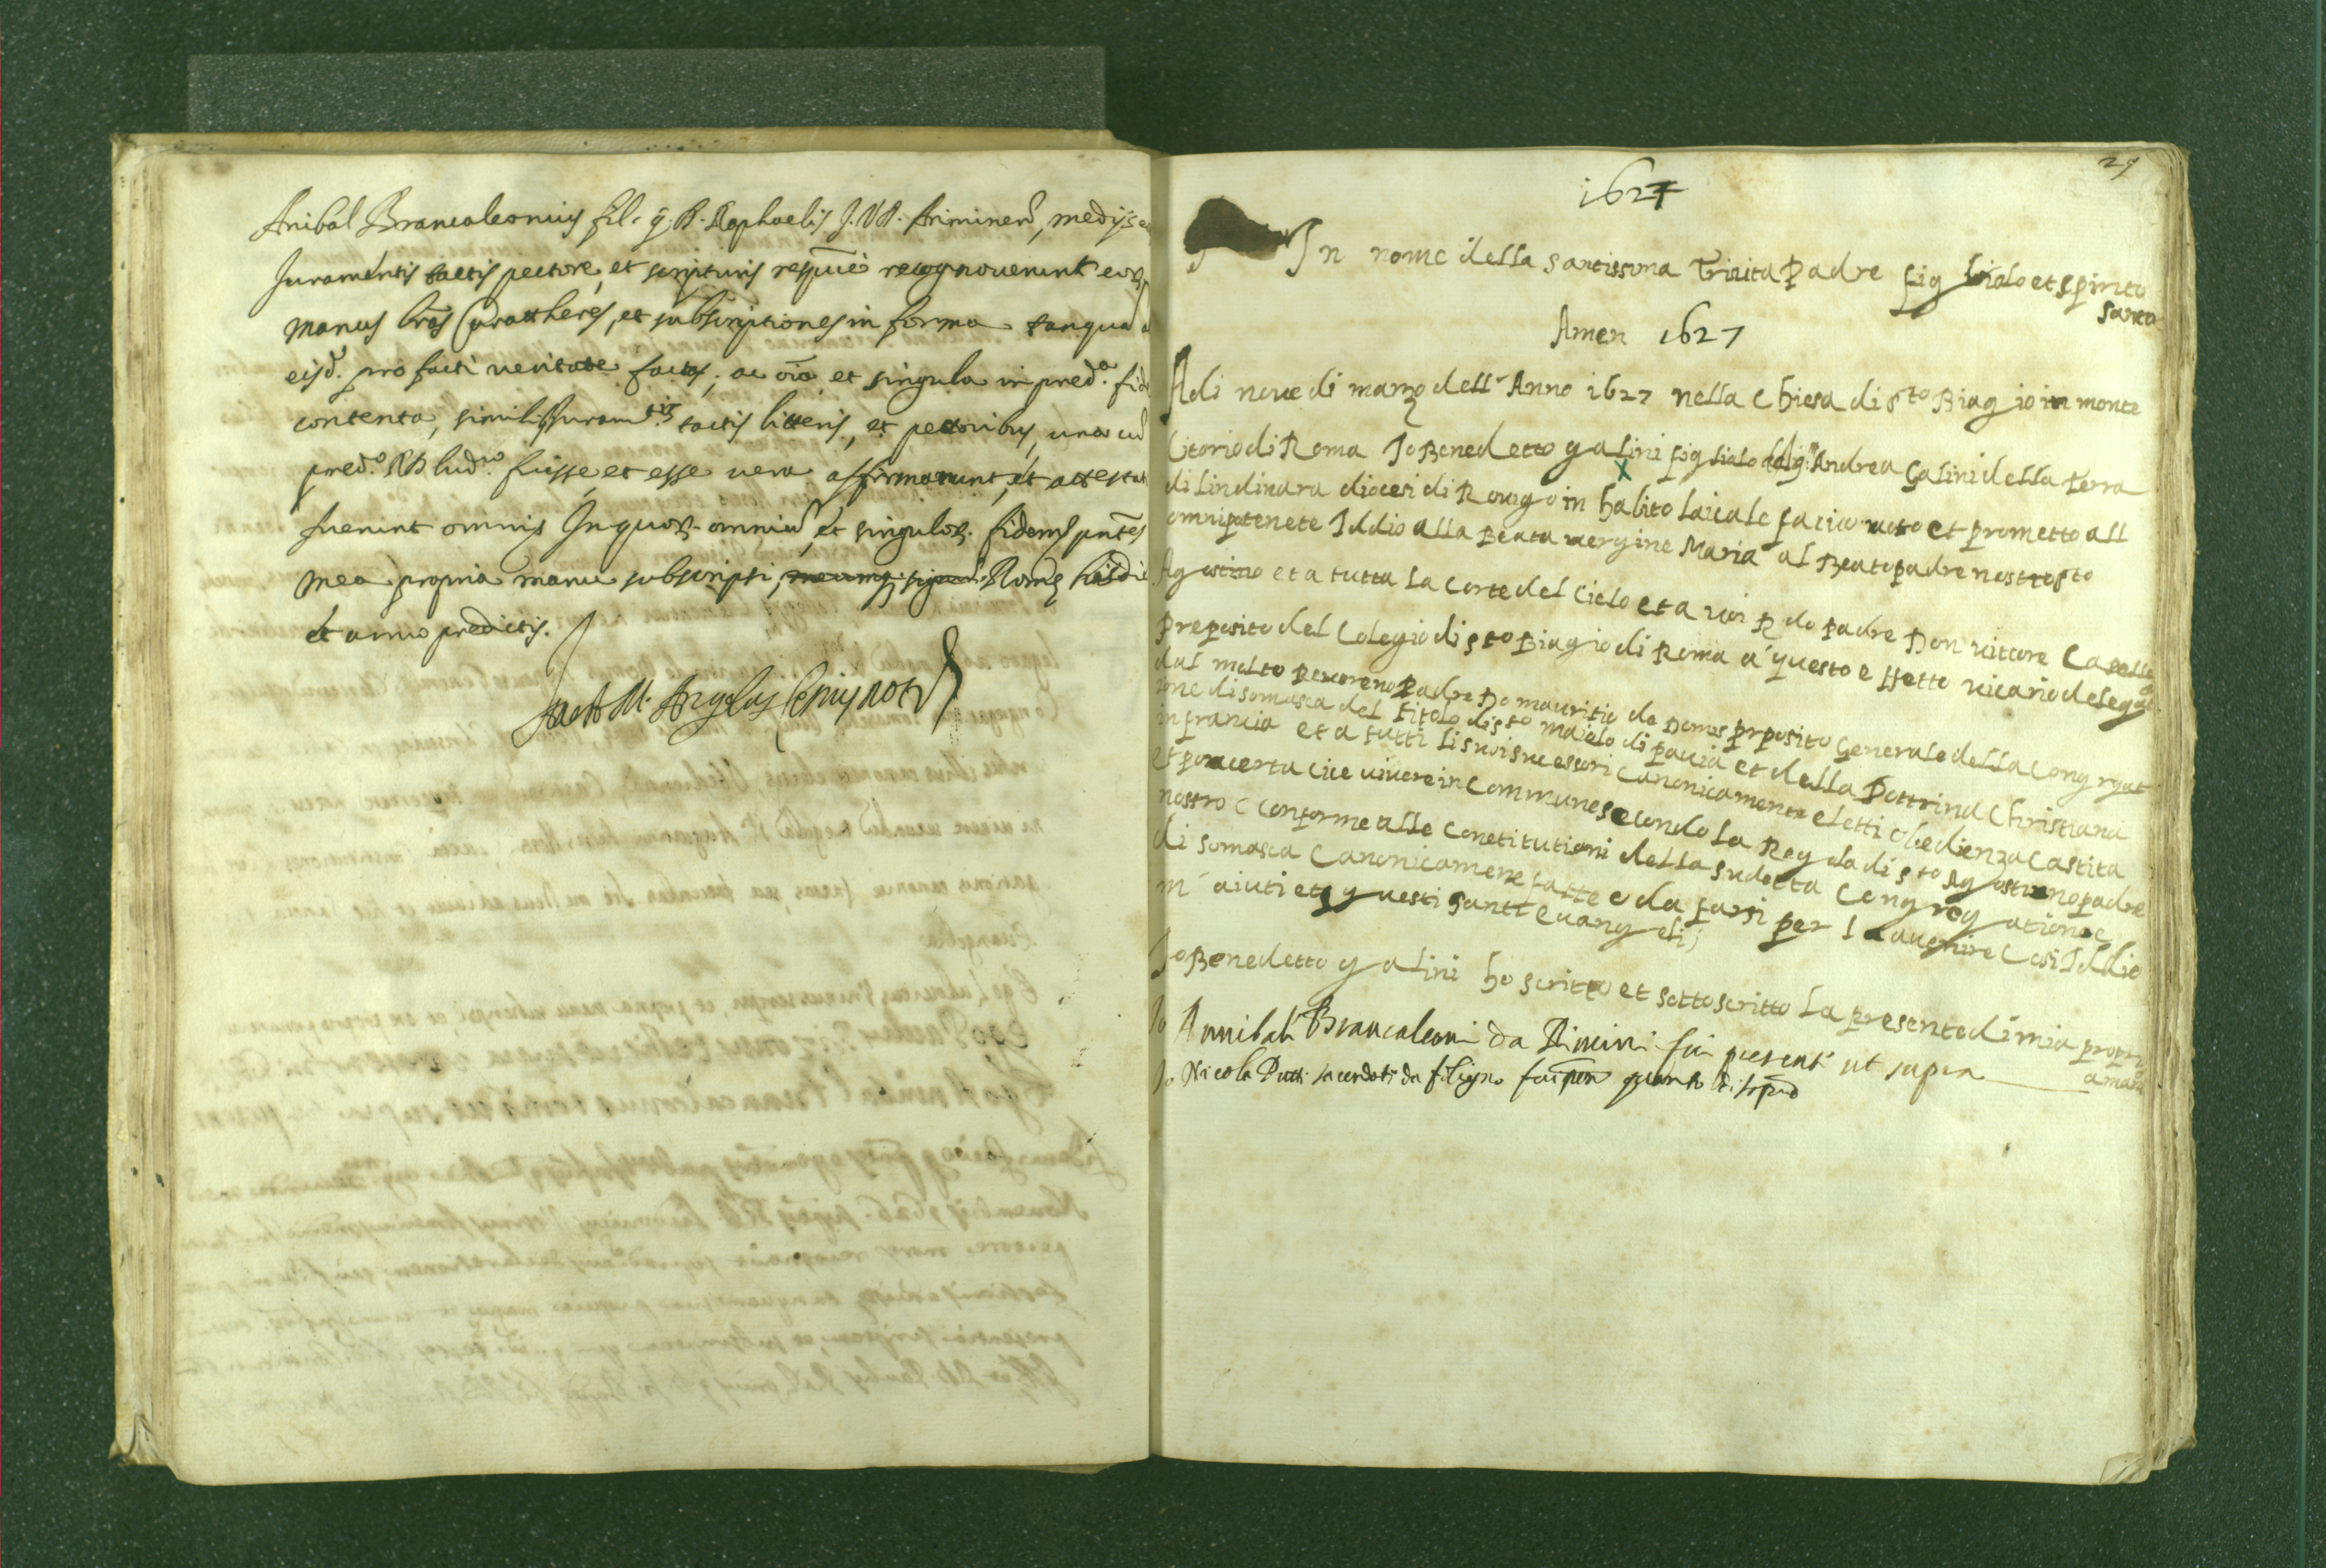 Anibal Brancaleonius fil. q. R. Raphaelis J.V.D. Ariminen, medijs
Juramentis tactis pectore, et scripturis respue recognouerunt eor
manus lras Carattheres, et subscriptiones in forma tanqua
eisd. pro facti veritate factas, ac oia et singula in pred.a fide
contenta, similibs Juram.tis tactis litteris, et pectoribus, una cu
pred.o RD lud.co fuisse et esse vera affirmarunt, et attestati
fuerunt omnis In quor. omniu et singulor. fidem pntes
mea propria manu subscripsi, Rome hisdie
et anno predictis.
M. Angelus Not
27
1627
In nome della santissima Trinita Padre figliolo et spirito
santo
Amen 1627
Adi nove di marzo dell' Anno 1627 nella chiesa di sto Biagio in monte
Citorio di Roma Io Benedetto galini figliolo del q. Andrea Galini della terra
di lindinara diocesi di Rovigo in habito laicale facio uoto et prometto all
omnipotenete Iddio alla Beata uergine Maria al Beato padre nostro sto
Agostino et a tutta la corte del Cielo et a uoi R do padre Don uittore Capello
preposito del Colegio di sto Biagio di Roma a questo effetto uicario delegat
dal molto Reuereno Padre Do mauritio de Domis prposito Generale della Congrgat
ione di somasca del titolo di sto maiolo di pauia et della Dottrina Christiana
in francia et a tutti li suoi sucessori canonicamente eletti obedienza Castita
et pouerta cice uiuere in commune secondo la Regola di sto Agostino padre
nostro c conforme alle constitutioni della sudetta Congregatione
di somasca Canonicamene fatte e da farsi per l auenire Cosi Iddio
m' aiuti et questi santi euangelij
Io Benedetto galini ho scritto et sottoscritto la presente di mia propri
a mano
Io Annibali Brancaleoni da Rimini fui presenti ut supra
Io Nicola Putti sacerdoti da filigno fui pnte quanto di sopra